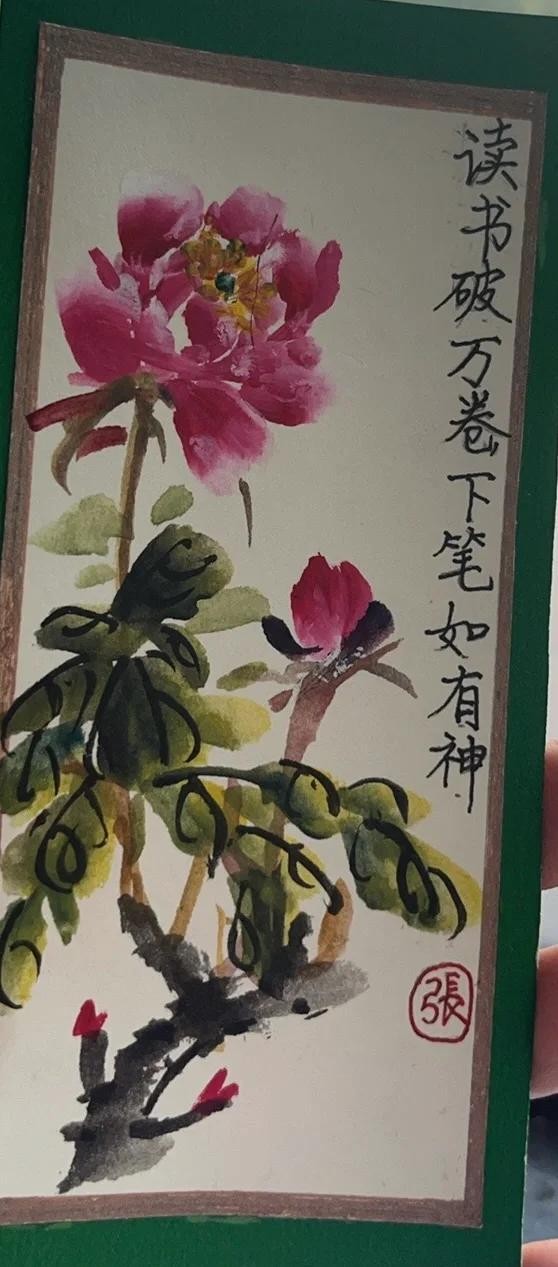 读书破万卷下笔如有神
張